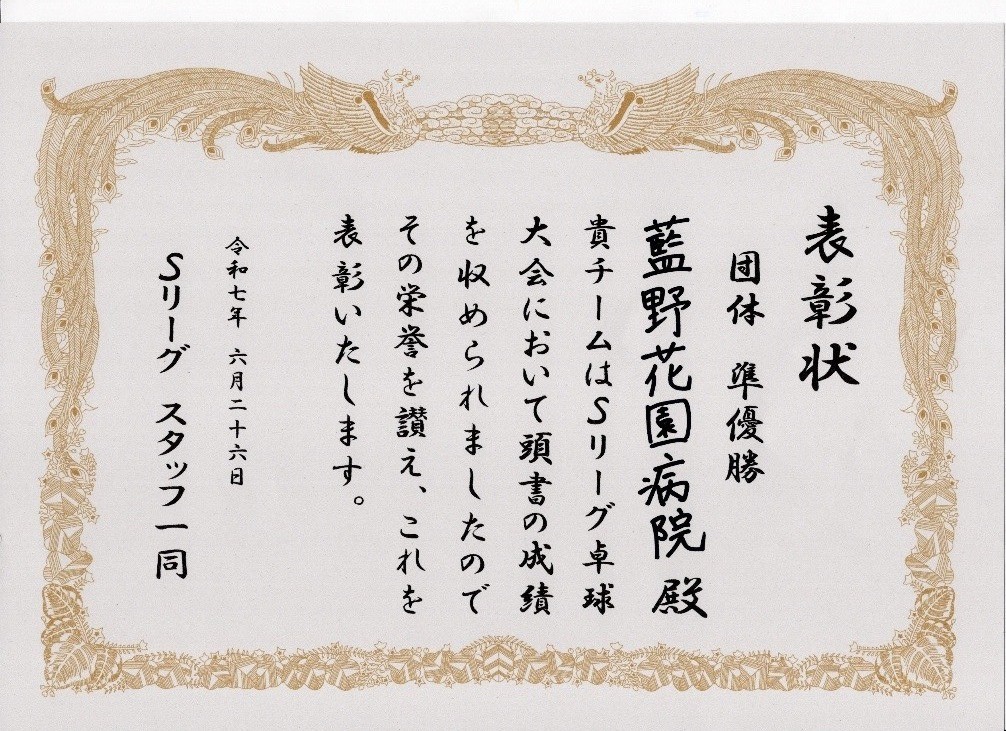 表彰状
団体　準優勝
藍野花園病院　殿
貴チームはＳリーグ卓球
大会において頭書の成績
を収められましたので
その栄誉を讃え、これを
表彰いたします。
令和七年　六月二十六日
Ｓリーグ　スタッフ一同